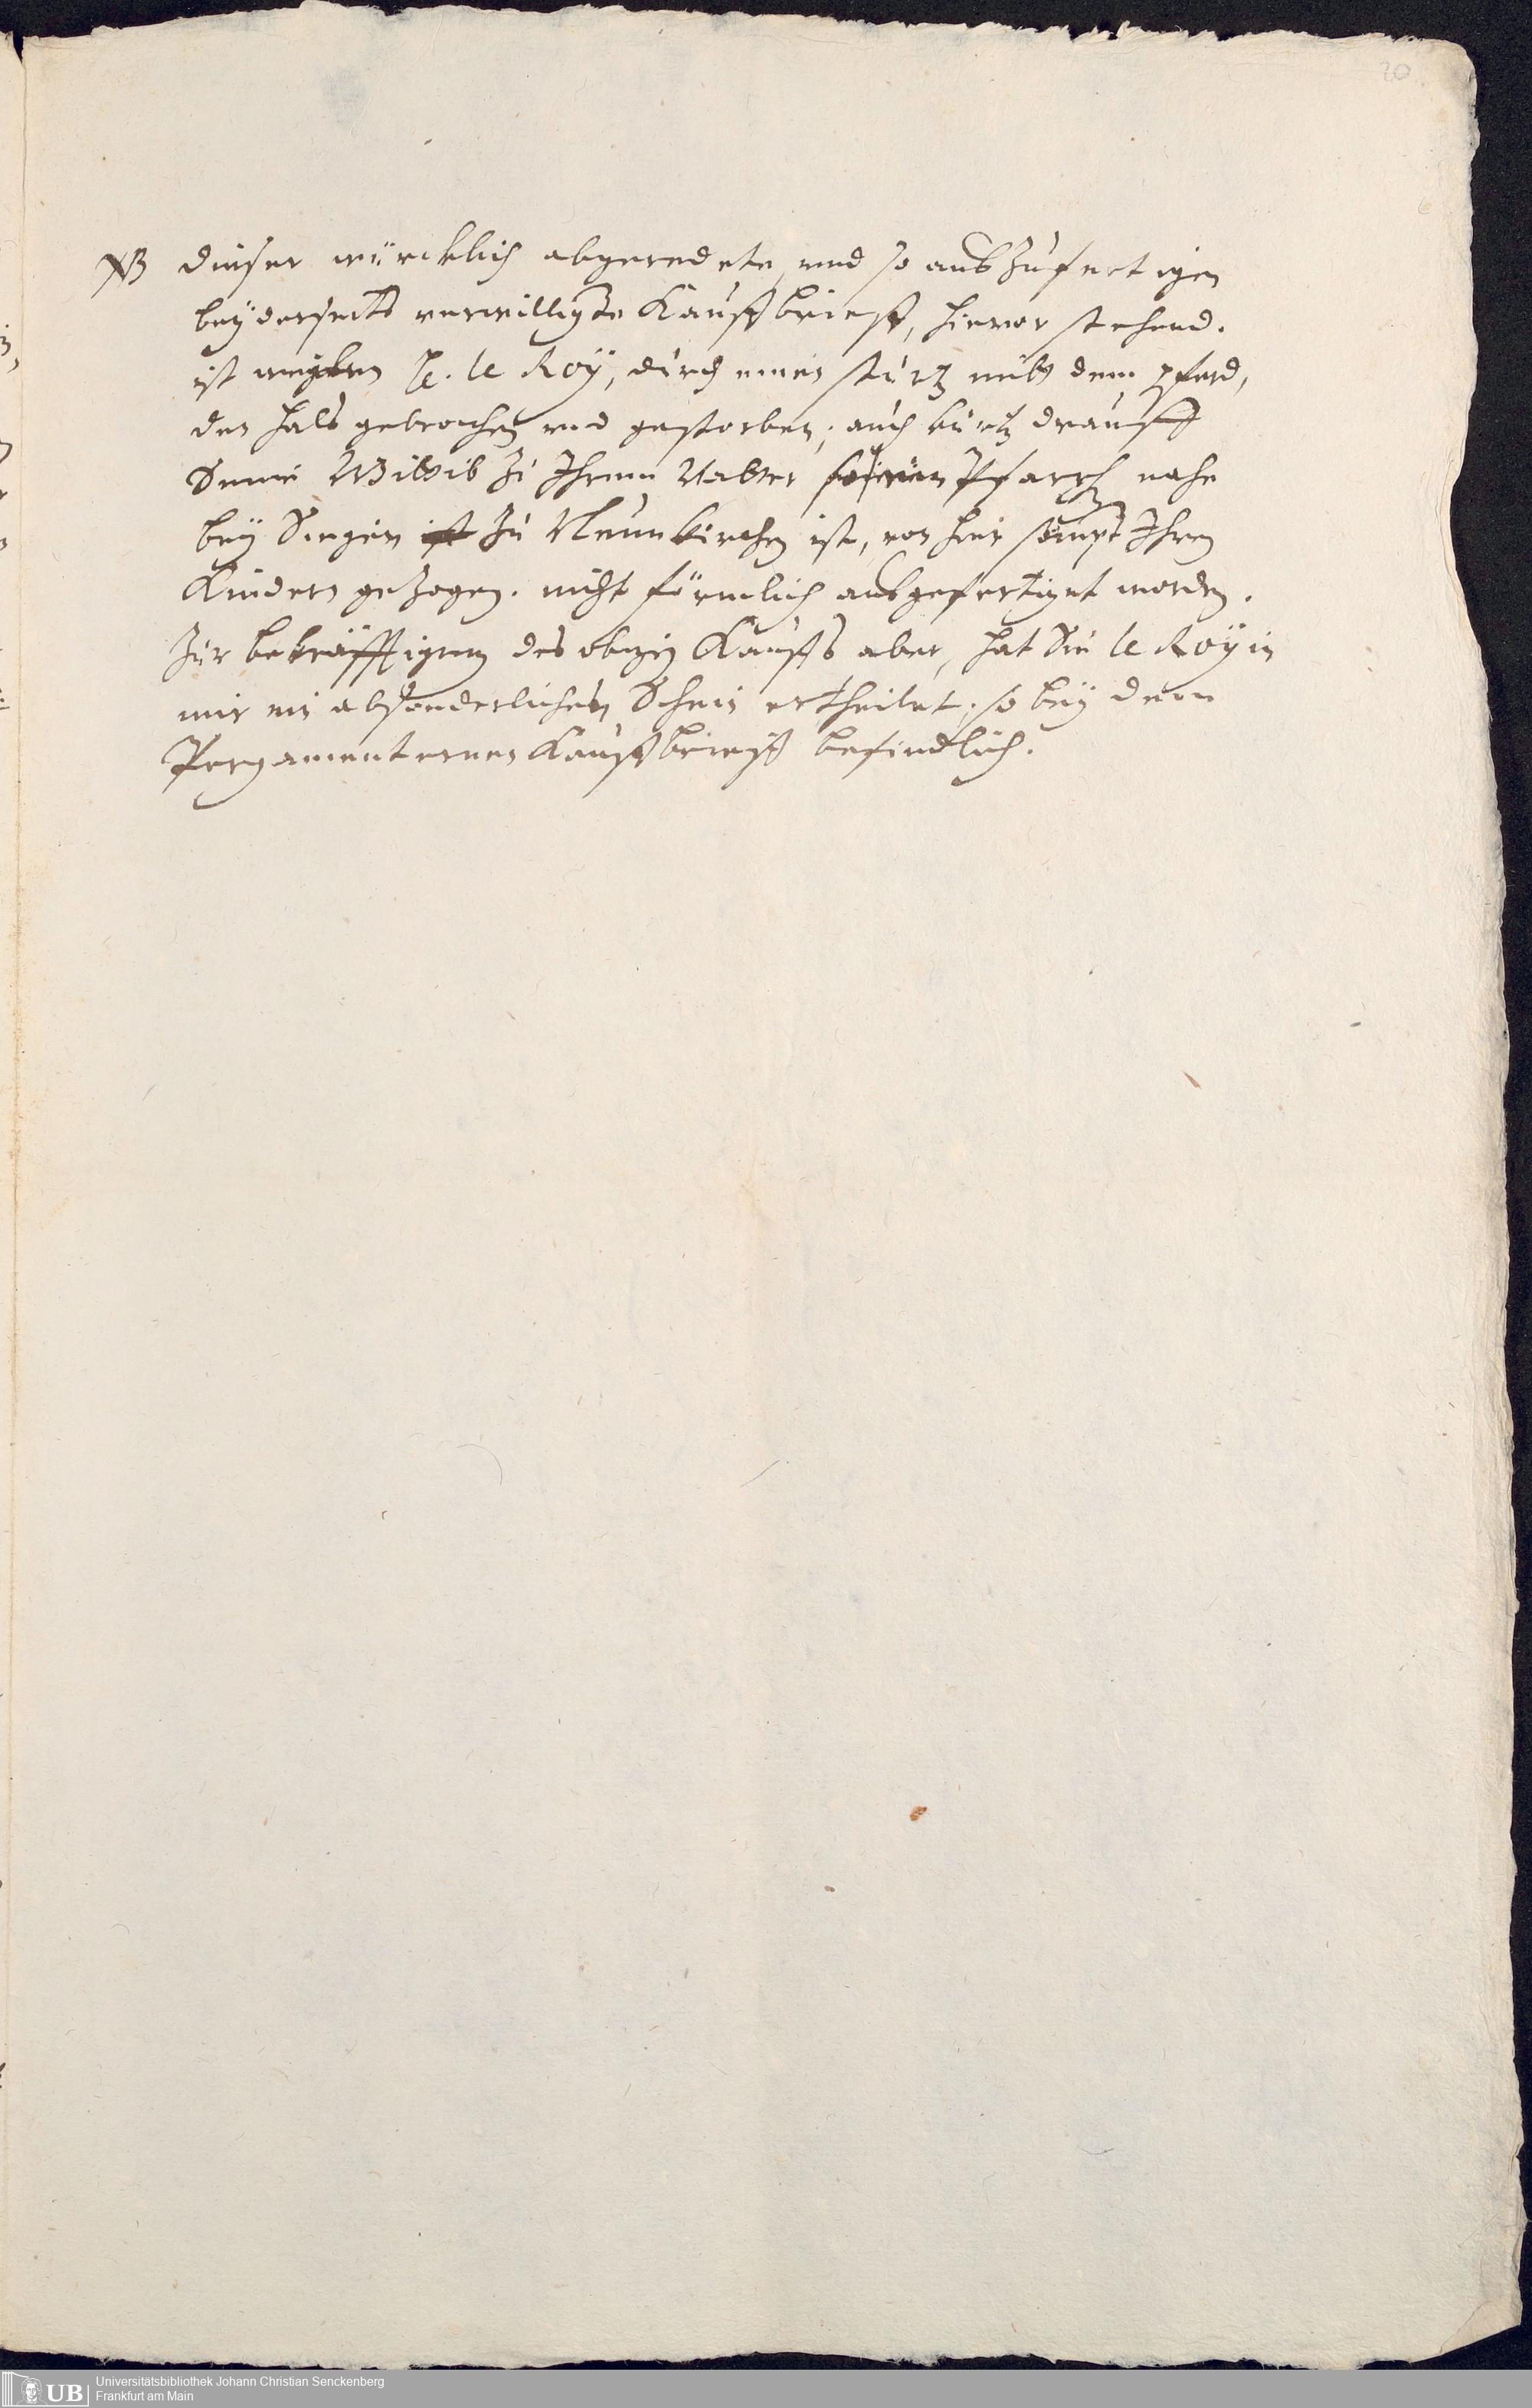 20
NB dieser würcklich abgeredete, und so auszufertigen
beyderseits verwilligte Kauffbrieff, hievor stehend.
ist weylen H. le Roÿ, durch einen sturtz mitt dem pferd,
den hals gebrochen und gestorben; auch kurtz drauff
Seine Wittib zu Ihrem Vatter so ein Pfarrh nahe
bey Siegen ist zu Neunkirchen ist, von hier sampt Ihren
Kindern gezogen. nicht förmlich ausgefertiget worden.
Zur bekräfftigung des obgen Kauffs aber, hat Sie le Roÿin
mir ein absonderlichen Schein ertheilet, so bey dem
Pergamenternen Kauffbrieff befindlich.
UB Universitätsbibliothek Johann Christian Senckenberg
Frankfurt am Main